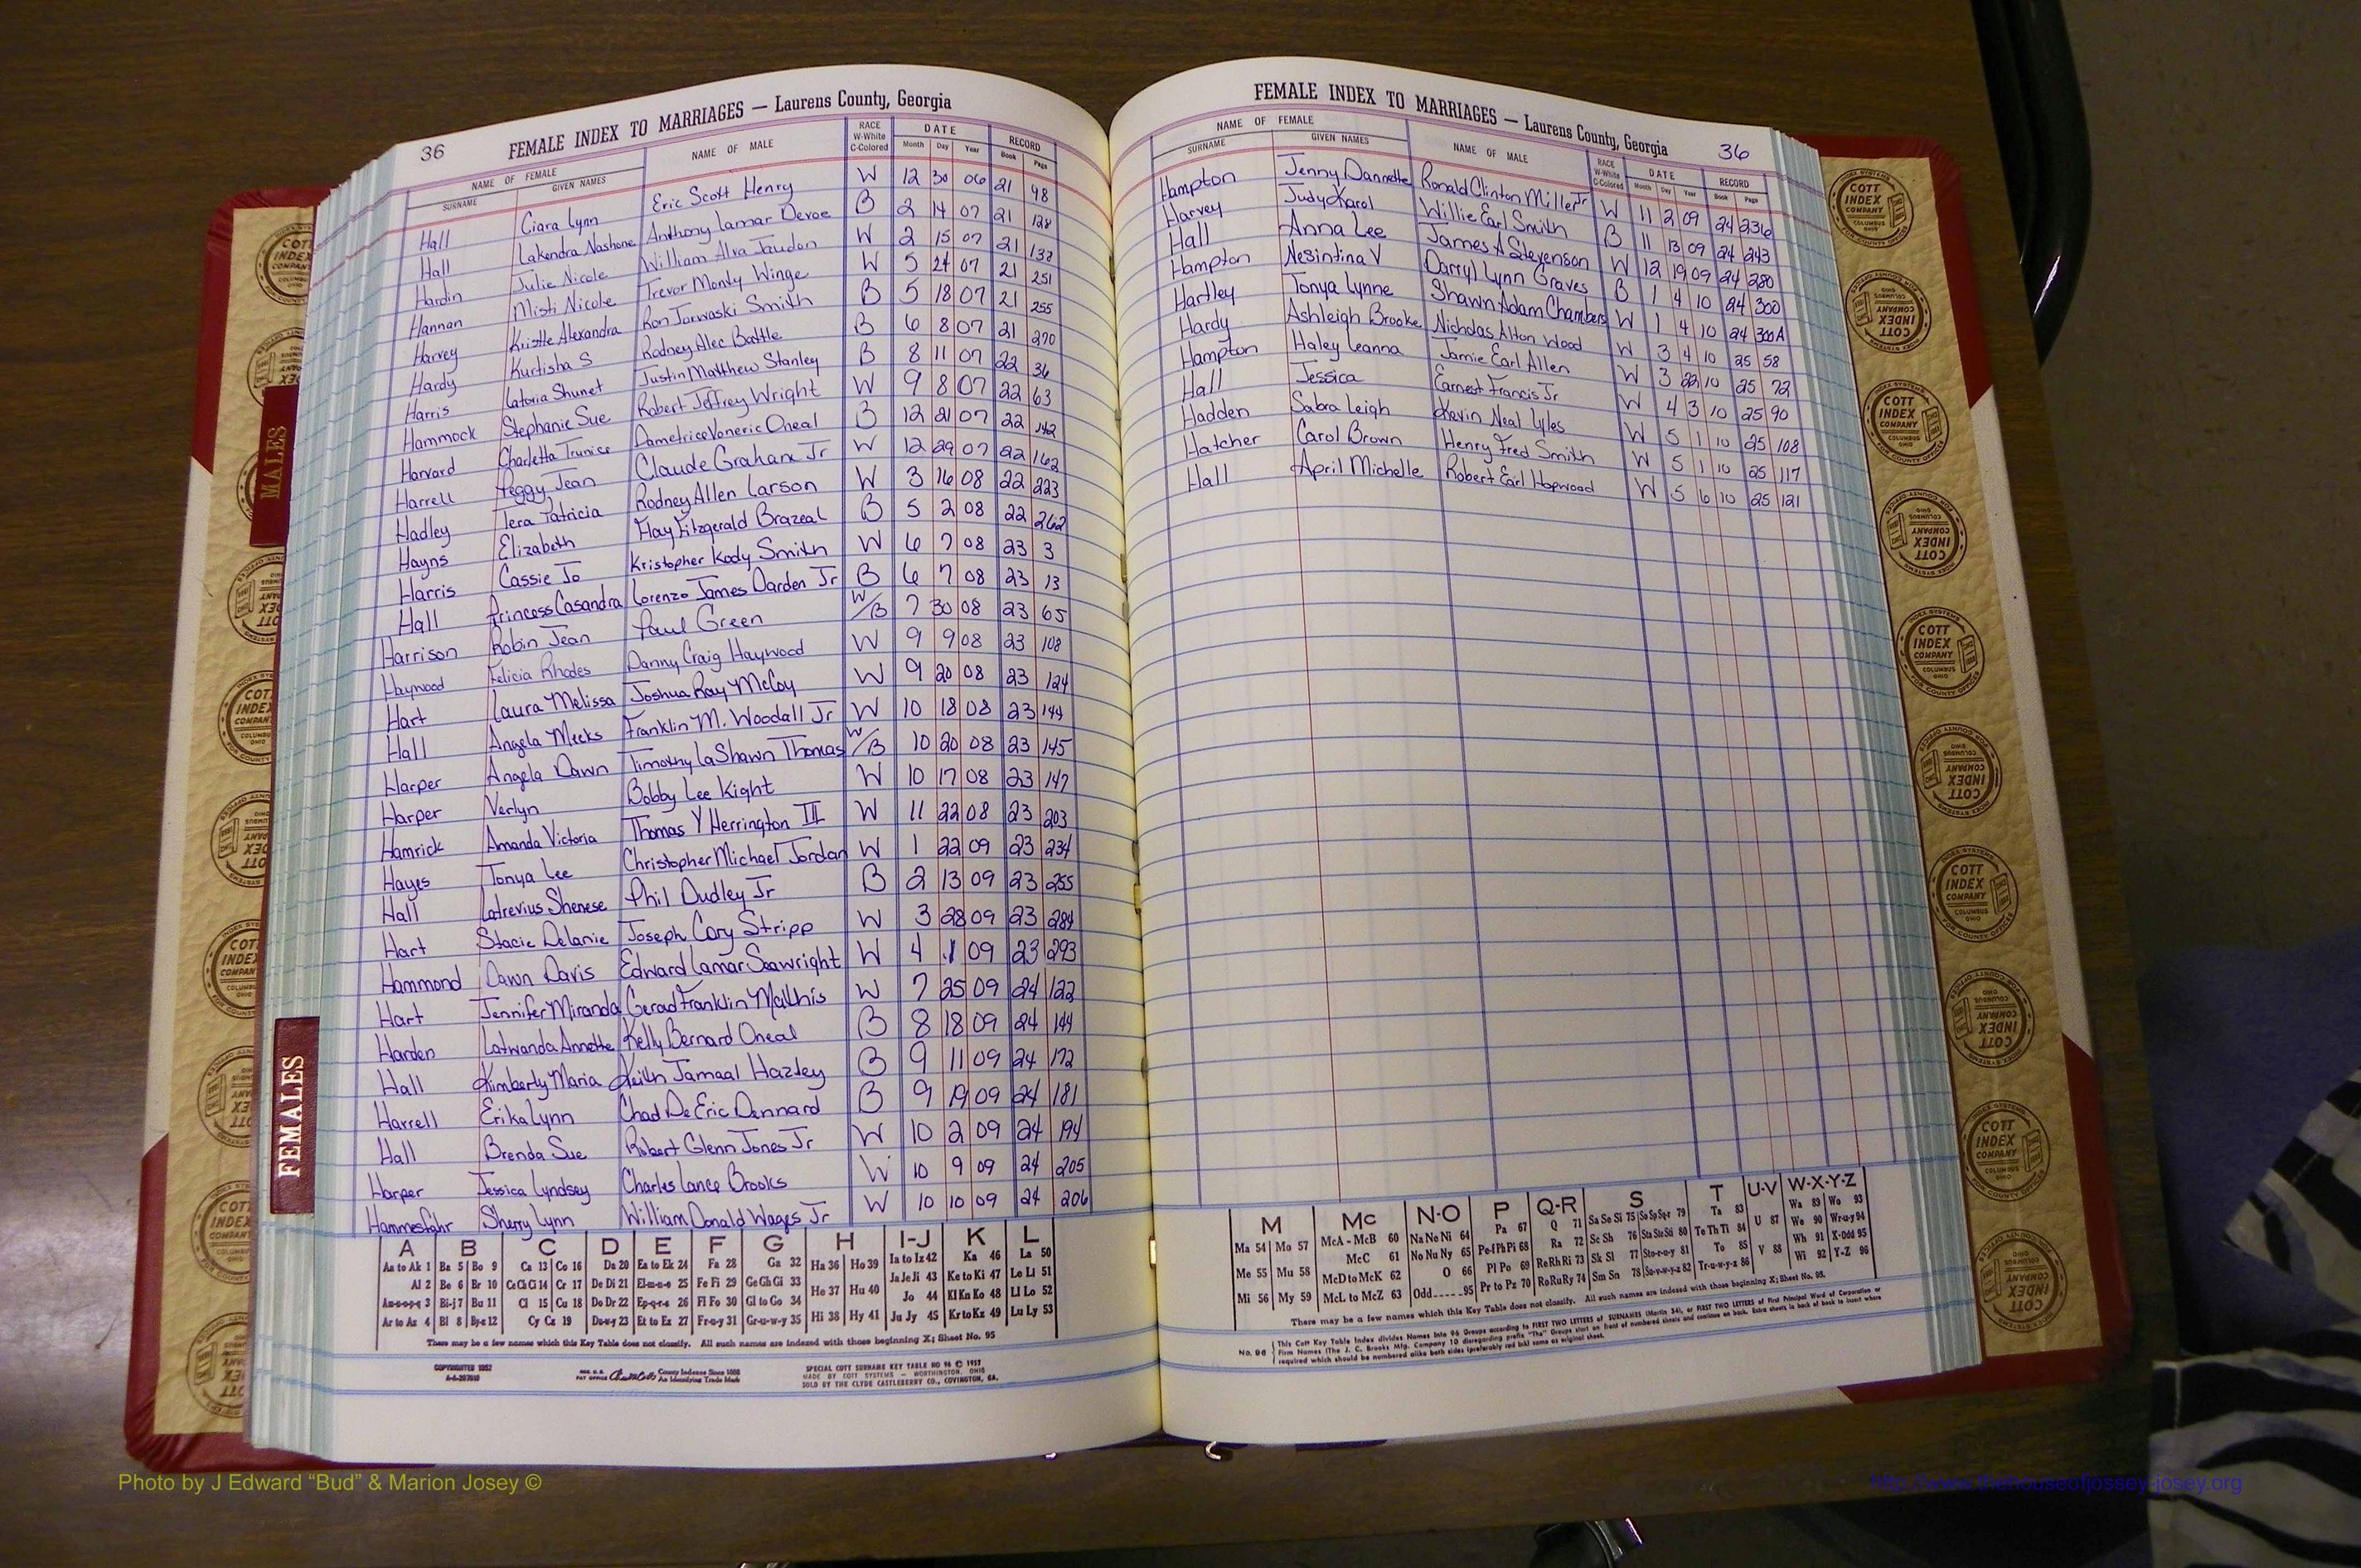 36 FEMALE INDEX TO MARRIAGES — Laurens County, Georgia
NAME OF FEMALE NAME OF MALE RACE W-White C-Colored DATE RECORD
SURNAME GIVEN NAMES Month Day Year Book Page
Hall Ciara Lynn Eric Scott Henry W 12 30 06 21 98
Hall Lakendra Nashone Anthony Lamar Devoe B 2 14 07 21 128
Hardin Julie Nicole William Alva Jaudon W 2 15 07 21 132
Hannan Misti Nicole Trevor Monty Winge W 5 24 07 21 251
Harvey Kristle Alexandra Ron Jarwaski Smith B 5 18 07 21 255
Hardy Kurtisha S Rodney Alec Battle B 6 8 07 21 270
Harris Latoria Shunet Justin Matthew Stanley B 8 11 07 22 36
Hammock Stephanie Sue Robert Jeffrey Wright W 9 8 07 22 63
Harvard Charletta Trunice Dametrice Voneric Oneal B 12 21 07 22 142
Harrell Peggy Jean Claude Graham Jr W 12 29 07 22 162
Hadley Tera Patricia Rodney Allen Larson W 3 16 08 22 223
Hayns Elizabeth Hay Fitzgerald Brazeal B 5 2 08 22 262
Harris Cassie Jo Kristopher Kody Smith W 6 7 08 23 3
Hall Princess Casandra Lorenzo James Darden Jr B 6 7 08 23 13
Harrison Robin Jean Paul Green W/B 7 30 08 23 65
Haywood Felicia Rhodes Danny Craig Haywood W 9 9 08 23 108
Hart Laura Melissa Joshua Ray McCoy W 9 20 08 23 124
Hall Angela Meeks Franklin M. Woodall Jr W 10 18 08 23 144
Harper Angela Dawn Timothy LaShawn Thomas W/B 10 20 08 23 145
Harper Verlyn Bobby Lee Kight W 10 17 08 23 147
Hamrick Amanda Victoria Thomas Y Herrington III W 11 22 08 23 203
Hayes Tonya Lee Christopher Michael Jordan W 1 22 09 23 234
Hall Latrevius Shenese Phil Dudley Jr B 2 13 09 23 255
Hart Stacie Delanie Joseph Cory Stripp W 3 28 09 23 284
Hammond Dawn Davis Edward Lamar Seawright W 4 1 09 23 293
Hart Jennifer Miranda Gerad Franklin Mathis W 7 25 09 24 122
Harden Latwanda Annette Kelly Bernard Oneal B 8 18 09 24 144
Hall Kimberly Maria Keith Jamaal Hazley B 9 11 09 24 172
Harrell Erika Lynn Chad De Eric Dennard B 9 19 09 24 181
Hall Brenda Sue Robert Glenn Jones Jr W 10 2 09 24 194
Harper Jessica Lyndsey Charles Lance Brooks W 10 9 09 24 205
Hammesfahr Sherry Lynn William Donald Wages Jr W 10 10 09 24 206
A B C D E F G H I-J K L
Aa to Ak 1 Ba 5 Bo 9 Ca 13 Co 16 Da 20 Ea to Ek 24 Fa 28 Ga 32 Ha 36 Ho 39 Ia to Iz 42 Ka 46 La 50
Al 2 Be 6 Br 10 Ce Ch Ci 14 Cr 17 De Di 21 El-m-n-o 25 Fe Fi 29 Ge Gh Gi 33 He 37 Hu 40 Ja Je Ji 43 Ke to Ki 47 Le Li 51
Am-n-o-p-q 3 Bi-j 7 Bu 11 Cl 15 Cu 18 Do Dr 22 Ep-q-r-s 26 Fl Fo 30 Gl to Go 34 Jo 44 Kl Kn Ko 48 Ll Lo 52
Ar to Az 4 Bl 8 By-z 12 Cy Cz 19 Du-w-y 23 Et to Ez 27 Fr-u-y 31 Gr-u-w-y 35 Hi 38 Hy 41 Ju Jy 45 Kr to Kz 49 Lu Ly 53
There may be a few names which this Key Table does not classify. All such names are indexed with those beginning X; Sheet No. 95
COPYRIGHTED 1952
County Indexes Since 1888
An Identifying Trade Mark
SPECIAL COTT SURNAME KEY TABLE NO 96 © 1957
MADE BY COTT SYSTEMS — WORTHINGTON, OHIO
SOLD BY THE CLYDE CASTLEBERRY CO., COVINGTON, GA.
FEMALE INDEX TO MARRIAGES — Laurens County, Georgia 36
NAME OF FEMALE NAME OF MALE RACE W-White C-Colored DATE RECORD
SURNAME GIVEN NAMES Month Day Year Book Page
Hampton Jenny Dannette Ronald Clinton Miller Jr W 11 2 09 24 236
Harvey Judy Karol Willie Earl Smith B 11 13 09 24 243
Hall Anna Lee James A Stevenson W 12 19 09 24 280
Hampton Nesintina V Darryl Lynn Graves B 1 4 10 24 300
Hartley Tonya Lynne Shawn Adam Chambers W 1 4 10 24 300A
Hardy Ashleigh Brooke Nicholas Alton Wood W 3 4 10 25 58
Hampton Haley Leanna Jamie Earl Allen W 3 22 10 25 72
Hall Jessica Earnest Francis Jr W 4 3 10 25 90
Hadden Sabra Leigh Kevin Neal Lyles W 5 1 10 25 108
Hatcher Carol Brown Henry Fred Smith W 5 1 10 25 117
Hall April Michelle Robert Earl Hopwood W 5 6 10 25 121
M Mc N-O P Q-R S T U-V W-X-Y-Z
Ma 54 Mo 57 McA - McB 60 Na Ne Ni 64 Pa 67 Q 71 Sa Se Si 75 So Sp Sq-r 79 Ta 83 Wa 89 Wo 93
Me 55 Mu 58 McC 61 No Nu Ny 65 Pe-f Ph Pi 68 Ra 72 Sc Sh 76 Sta Ste Sti 80 Te Th Ti 84 U 87 We 90 Wr-u-y 94
McD to McK 62 O 66 Pl Po 69 Re Rh Ri 73 Sk Sl 77 Sto-r-u-y 81 To 85 Wh 91 X-Odd 95
Mi 56 My 59 McL to McZ 63 Odd 95 Pr to Pz 70 Ro Ru Ry 74 Sm Sn 78 Su-v-w-y-z 82 Tr-u-w-y-z 86 V 88 Wi 92 Y-Z 96
There may be a few names which this Key Table does not classify. All such names are indexed with those beginning X; Sheet No. 95.
No. 96
This Cott Key Table Index divides Names into 96 Groups according to FIRST TWO LETTERS of SURNAMES (Martin 54), or FIRST TWO LETTERS of First Principal Word of Corporation or
Firm Names (The J. C. Brooks Mfg. Company 10 disregarding prefix "The" Groups start on front of numbered sheets and continue on back. Extra sheets in back of book to insert where
required which should be numbered alike both sides (preferably red ink) same as original sheet.
MALES
FEMALES
COTT INDEX COMPANY COLUMBUS OHIO
INDEX SYSTEMS FOR COUNTY OFFICES
Photo by J Edward “Bud” & Marion Josey ©
http://www.thehouseofjossey-josey.org